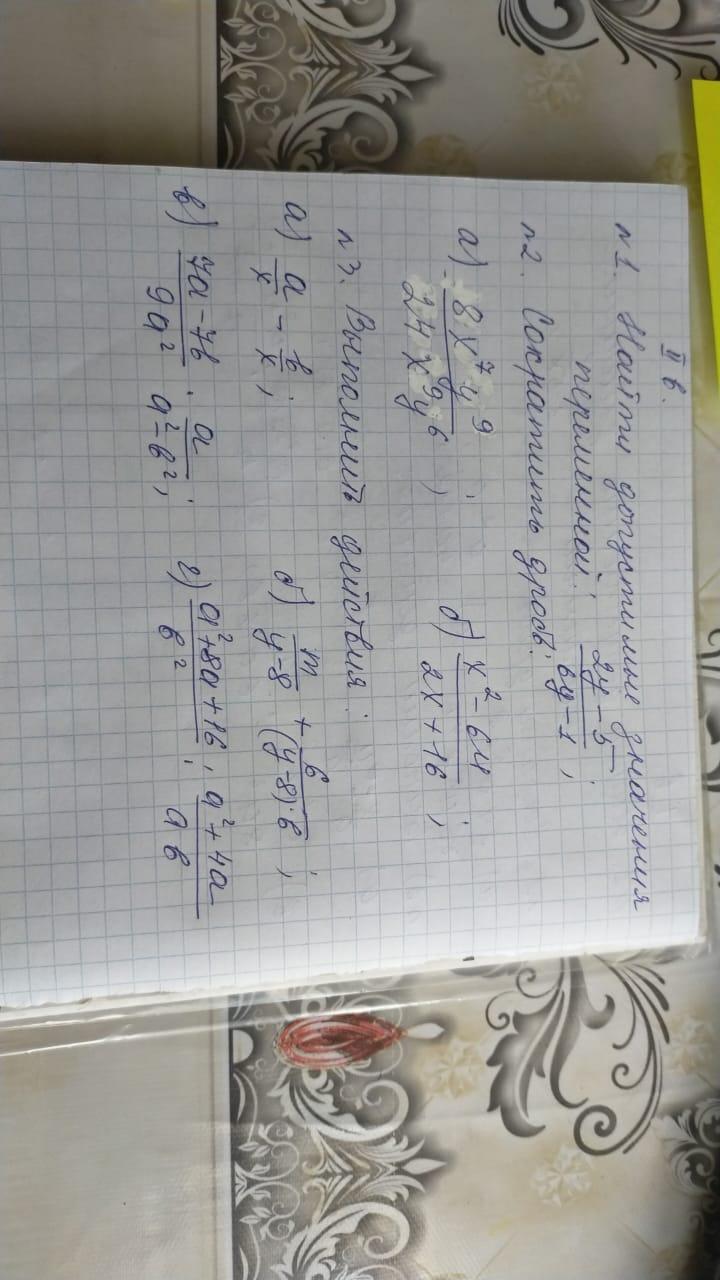 II в.
№1. Найти допустимые значения
переменной: (2y-5)/(6y-1);
№2. Сократить дробь:
а) (8x⁷y⁹)/(24x⁹y⁶); б) (x²-64)/(2x+16);
№3. Выполнить действия:
а) a/x - b/x; б) m/(y-8) + 6/((y-8)·b);
в) (7a-7b)/(9a²) · a/(a²-b²); г) (a²+8a+16)/(b²) : (a²+4a)/(ab)